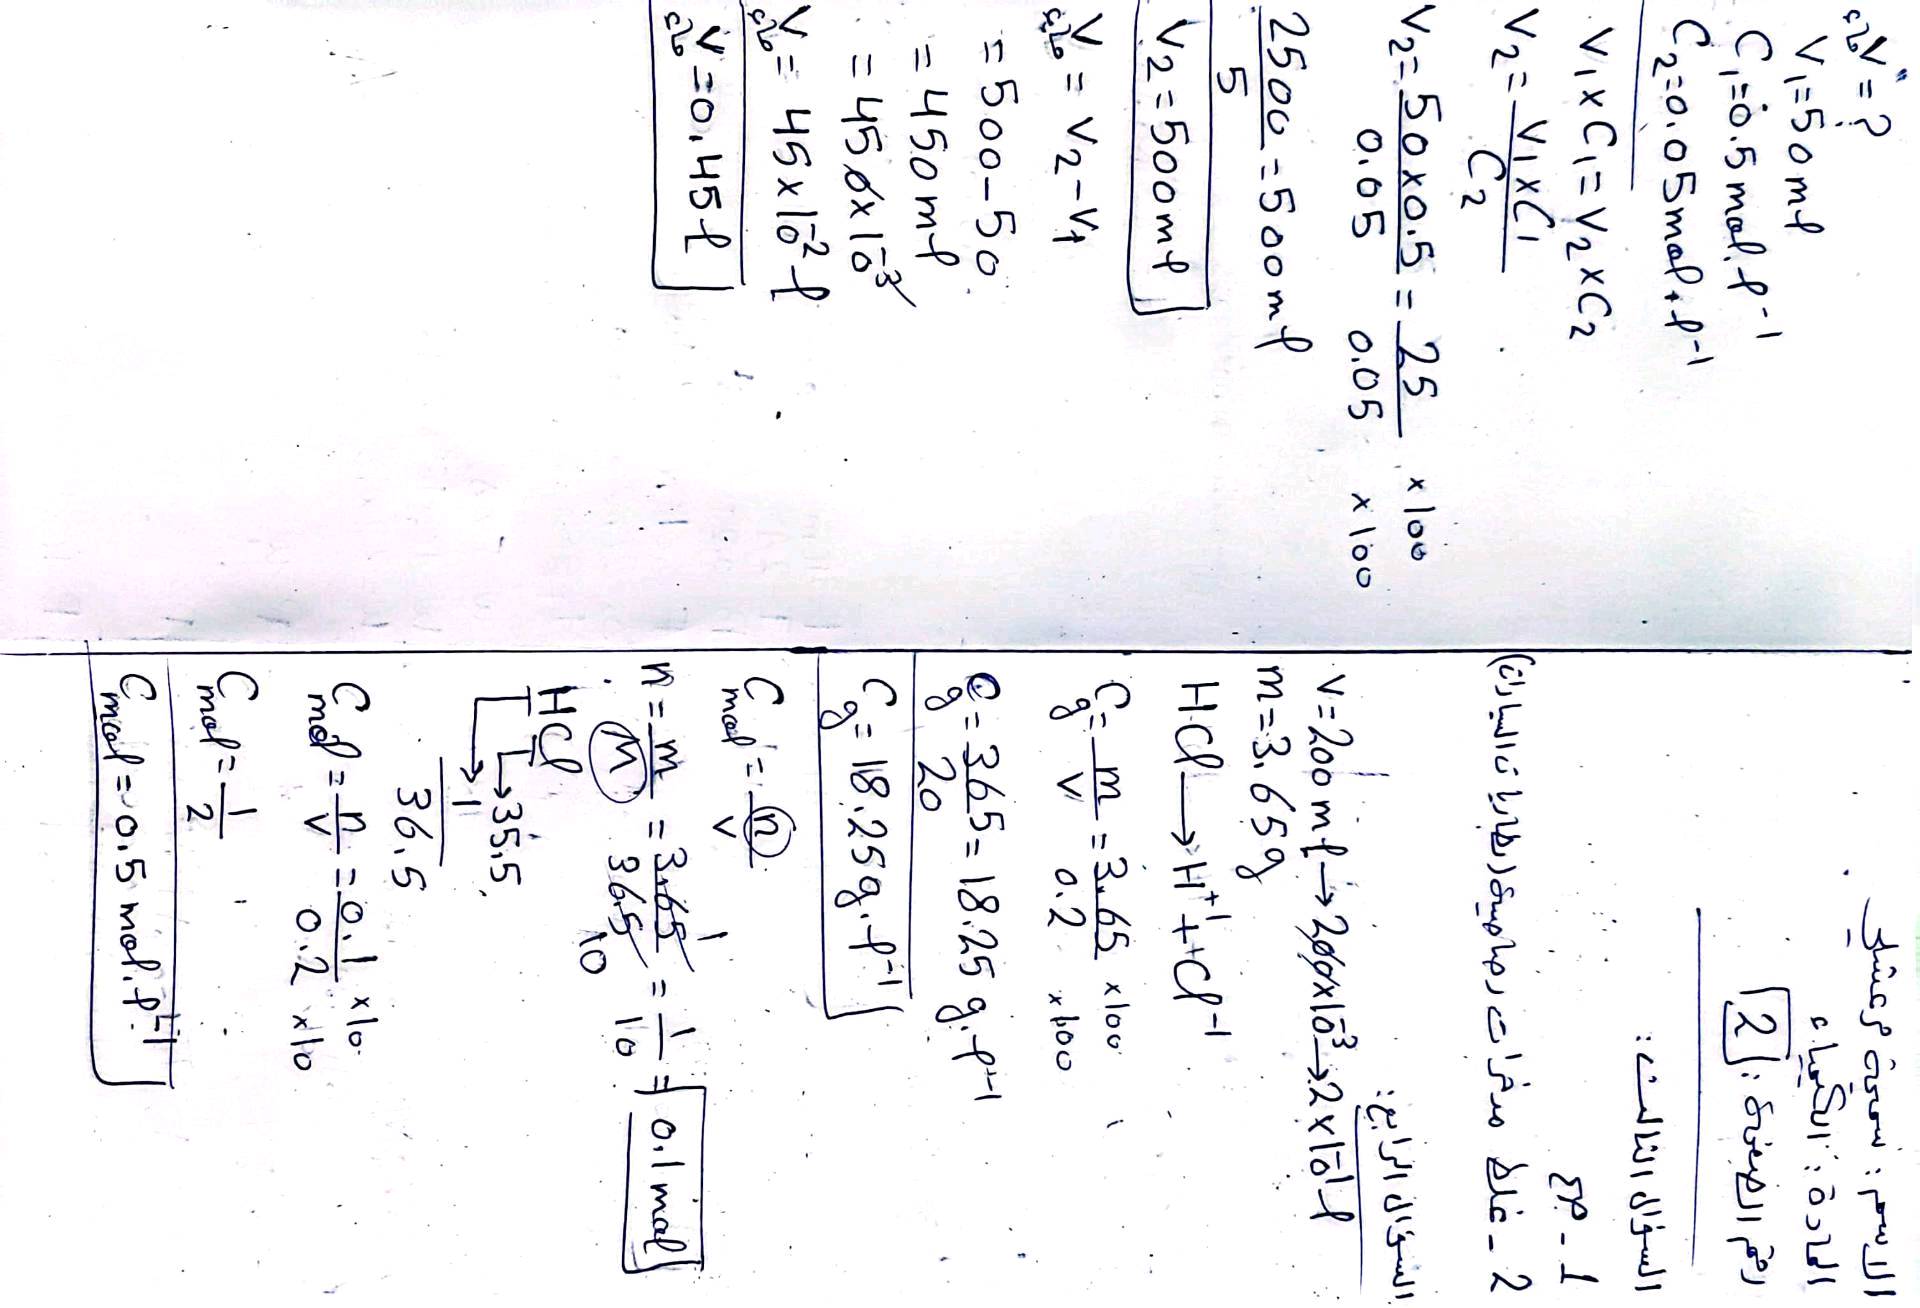 الاسم: سمعت عشك
المادة: الكيمياء
رقم الصفحة: 2
السؤال الثالث:
1 - صح
2 - غلط
السؤال الرابع:
V=200ml→200×10⁻³→2×10⁻¹l
m=3.65g
HCl→H⁺¹+Cl⁻¹
Cg=m/V=3.65/0.2 ×100 ×100
Cg=365/20=18.25g.l⁻¹
Cg=18.25g.l⁻¹
Cmol=n/V
n=m/M=3.65/36.5=1/10=0.1mol
HCl
→35.5
→1
36.5
Cmol=n/V=0.1/0.2 ×10 ×10
Cmol=1/2
Cmol=0.5mol.l⁻¹
V ماء=?
V₁=50ml
C₁=0.5mol.l⁻¹
C₂=0.05mol.l⁻¹
V₁×C₁=V₂×C₂
V₂=V₁×C₁/C₂
V₂=50×0.5/0.05=25/0.05 ×100 ×100
2500/5=500ml
V₂=500ml
V ماء=V₂-V₁
=500-50
=450ml
=450×10⁻³
V ماء=45×10⁻²l
V ماء=0.45l